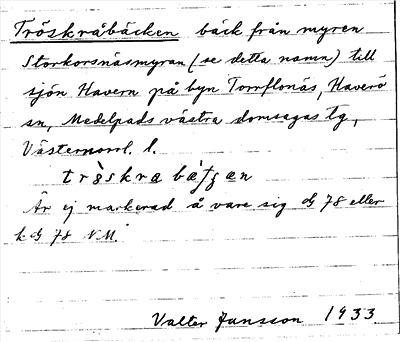 Tröskråbäcken bäck från myren
Storkorsnäsmyran (se detta namn) till
sjön Havern på byn Tornflonäs, Haverö
sn, Medelpads västra domsagas tg,
Västernorrl. l.
Är ej markerad å vare sig 78 eller
78 N.M.
Valter Jansson 1933